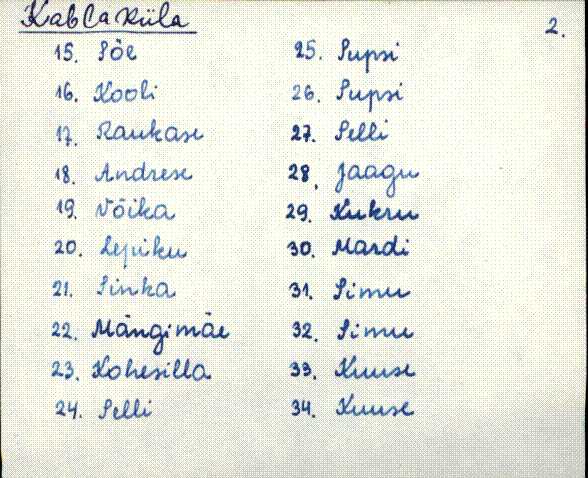 Kabla küla
2.
15. Sõe
16. Kooli
17. Raukase
18. Andrese
19. Võika
20. Lepiku
21. Sinka
22. Mängimäe
23. Kohesilla
24. Selli
25. Pupsi
26. Pupsi
27. Selli
28. Jaagu
29. Kukru
30. Mardi
31. Simu
32. Simu
33. Kuuse
34. Kuuse